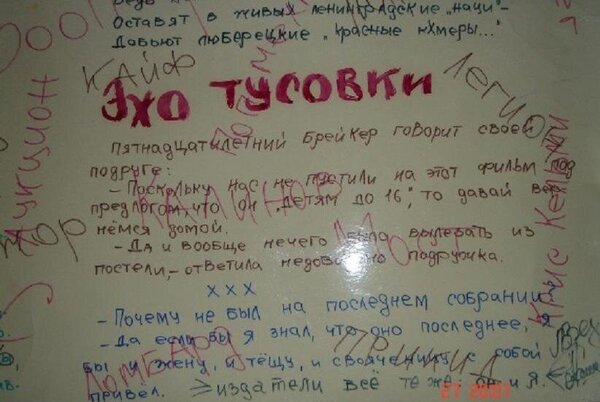 Оставят в живых ленинградские „наци"-
Давьют люберецкие „красные кхмеры..."
КАЙФ
Легио
Аукцион
ЭХО ТУСОВКИ
Пятнадцатилетний брейкер говорит своей
подруге:
- Поскольку нас не пустили на этот фильм под
предлогом, что он „детям до 16", то давай вер-
нёмся домой.
- Да и вообще нечего было вылезать из
постели, - ответила недовольно подружка.
Крис Кельми
Калинов
Мост
х х х
- Почему не был на последнем собрании?
- Да если бы я знал, что оно последнее, я
бы и жену, и тёщу, и свояченицу с собой
привёл.
ЛОМБАРД
издатели всё те же: он и я.